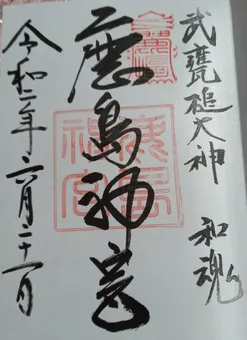 武甕槌大神 和魂
鹿島神宮
鹿島
神宮
令和二年六月二十一日